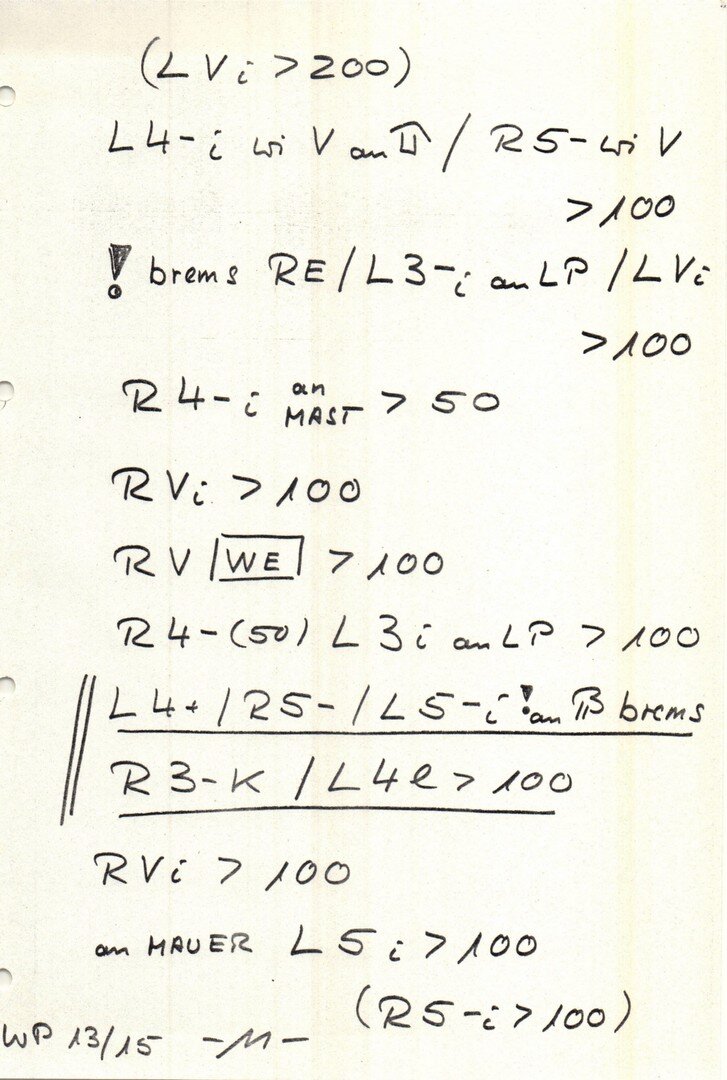 (L Vi > 200)
L4-i wi V an / R5-wi V
> 100
! brems RE / L3-i an LP / LVi
> 100
R 4-i an MAST > 50
R Vi > 100
R V | WE | > 100
R 4-(50) L 3 i an LP > 100
L4+ / R5- / L5-i ! an brems
R3-K / L4 > 100
R Vi > 100
an MAUER L 5 i > 100
(R5-i > 100)
WP 13/15 -11-